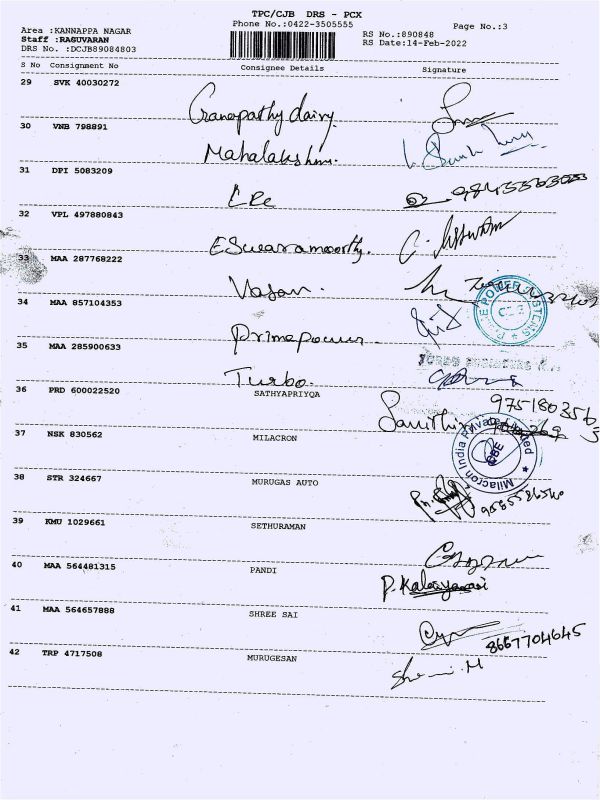 TPC/CJB DRS - PCX
Phone No.:0422-3505555
Page No.:3
Area :KANNAPPA NAGAR
Staff :RAGUVARAN
DRS No. :DCJB89084803
RS No.:890848
RS Date:14-Feb-2022
S No Consignment No Consignee Details Signature
29 SVK 40030272 Ganapathy dairy.
30 VNB 798891 Mahalakshmi.
31 DPI 5083209
32 VPL 497880843 Eswaramoorthy.
33 MAA 287768222 Vasan.
34 MAA 857104353 Primepower
35 MAA 285900633 Turbo.
36 PRD 600022520 SATHYAPRIYQA
9751803565
37 NSK 830562 MILACRON
Milacron India Private Limited
CBE
38 STR 324667 MURUGAS AUTO
39 KMU 1029661 SETHURAMAN
40 MAA 564481315 PANDI P. Kalaiyarasi
41 MAA 564657888 SHREE SAI
8667704645
42 TRP 4717508 MURUGESAN